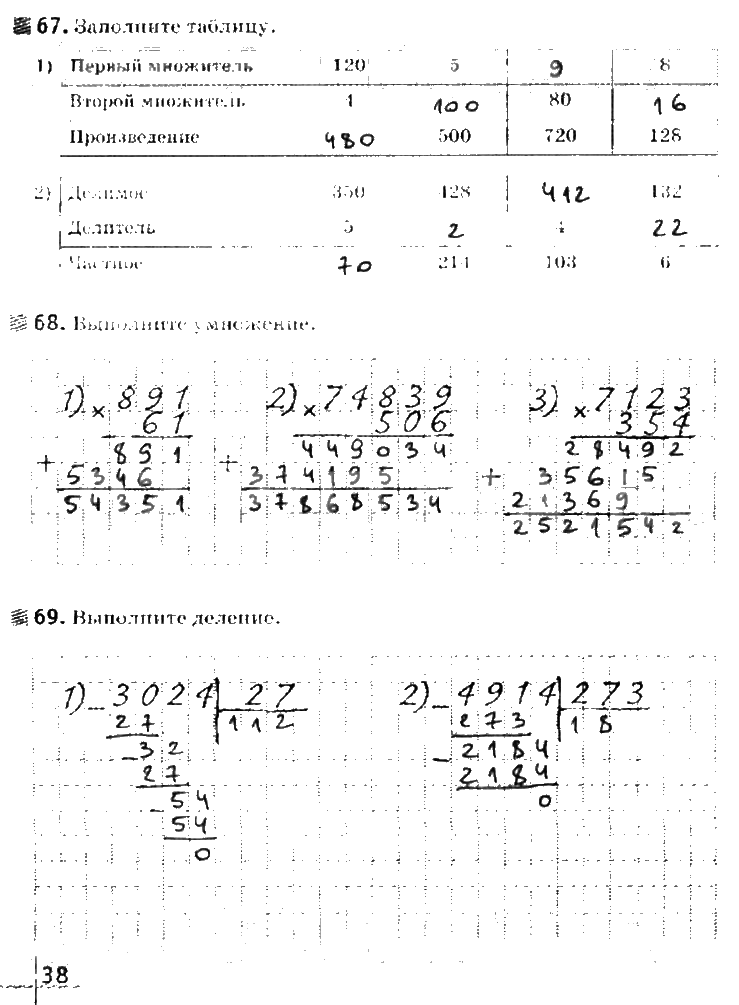 67. Заполните таблицу.
1) Первый множитель 120 5 9 8
Второй множитель 4 100 80 16
Произведение 480 500 720 128
2) Делимое 350 428 412 132
Делитель 5 2 4 22
Частное 70 214 103 6
68. Выполните умножение.
1) × 891 2) × 74839 3) × 7123
61 506 354
+ 891 + 449034 + 28492
5346 374195 35615
54351 37868534 21369
2521542
69. Выполните деление.
1) - 3024 27 2) - 4914 273
27 112 273 18
- 32 - 2184
27 2184
- 54 0
54
0
38